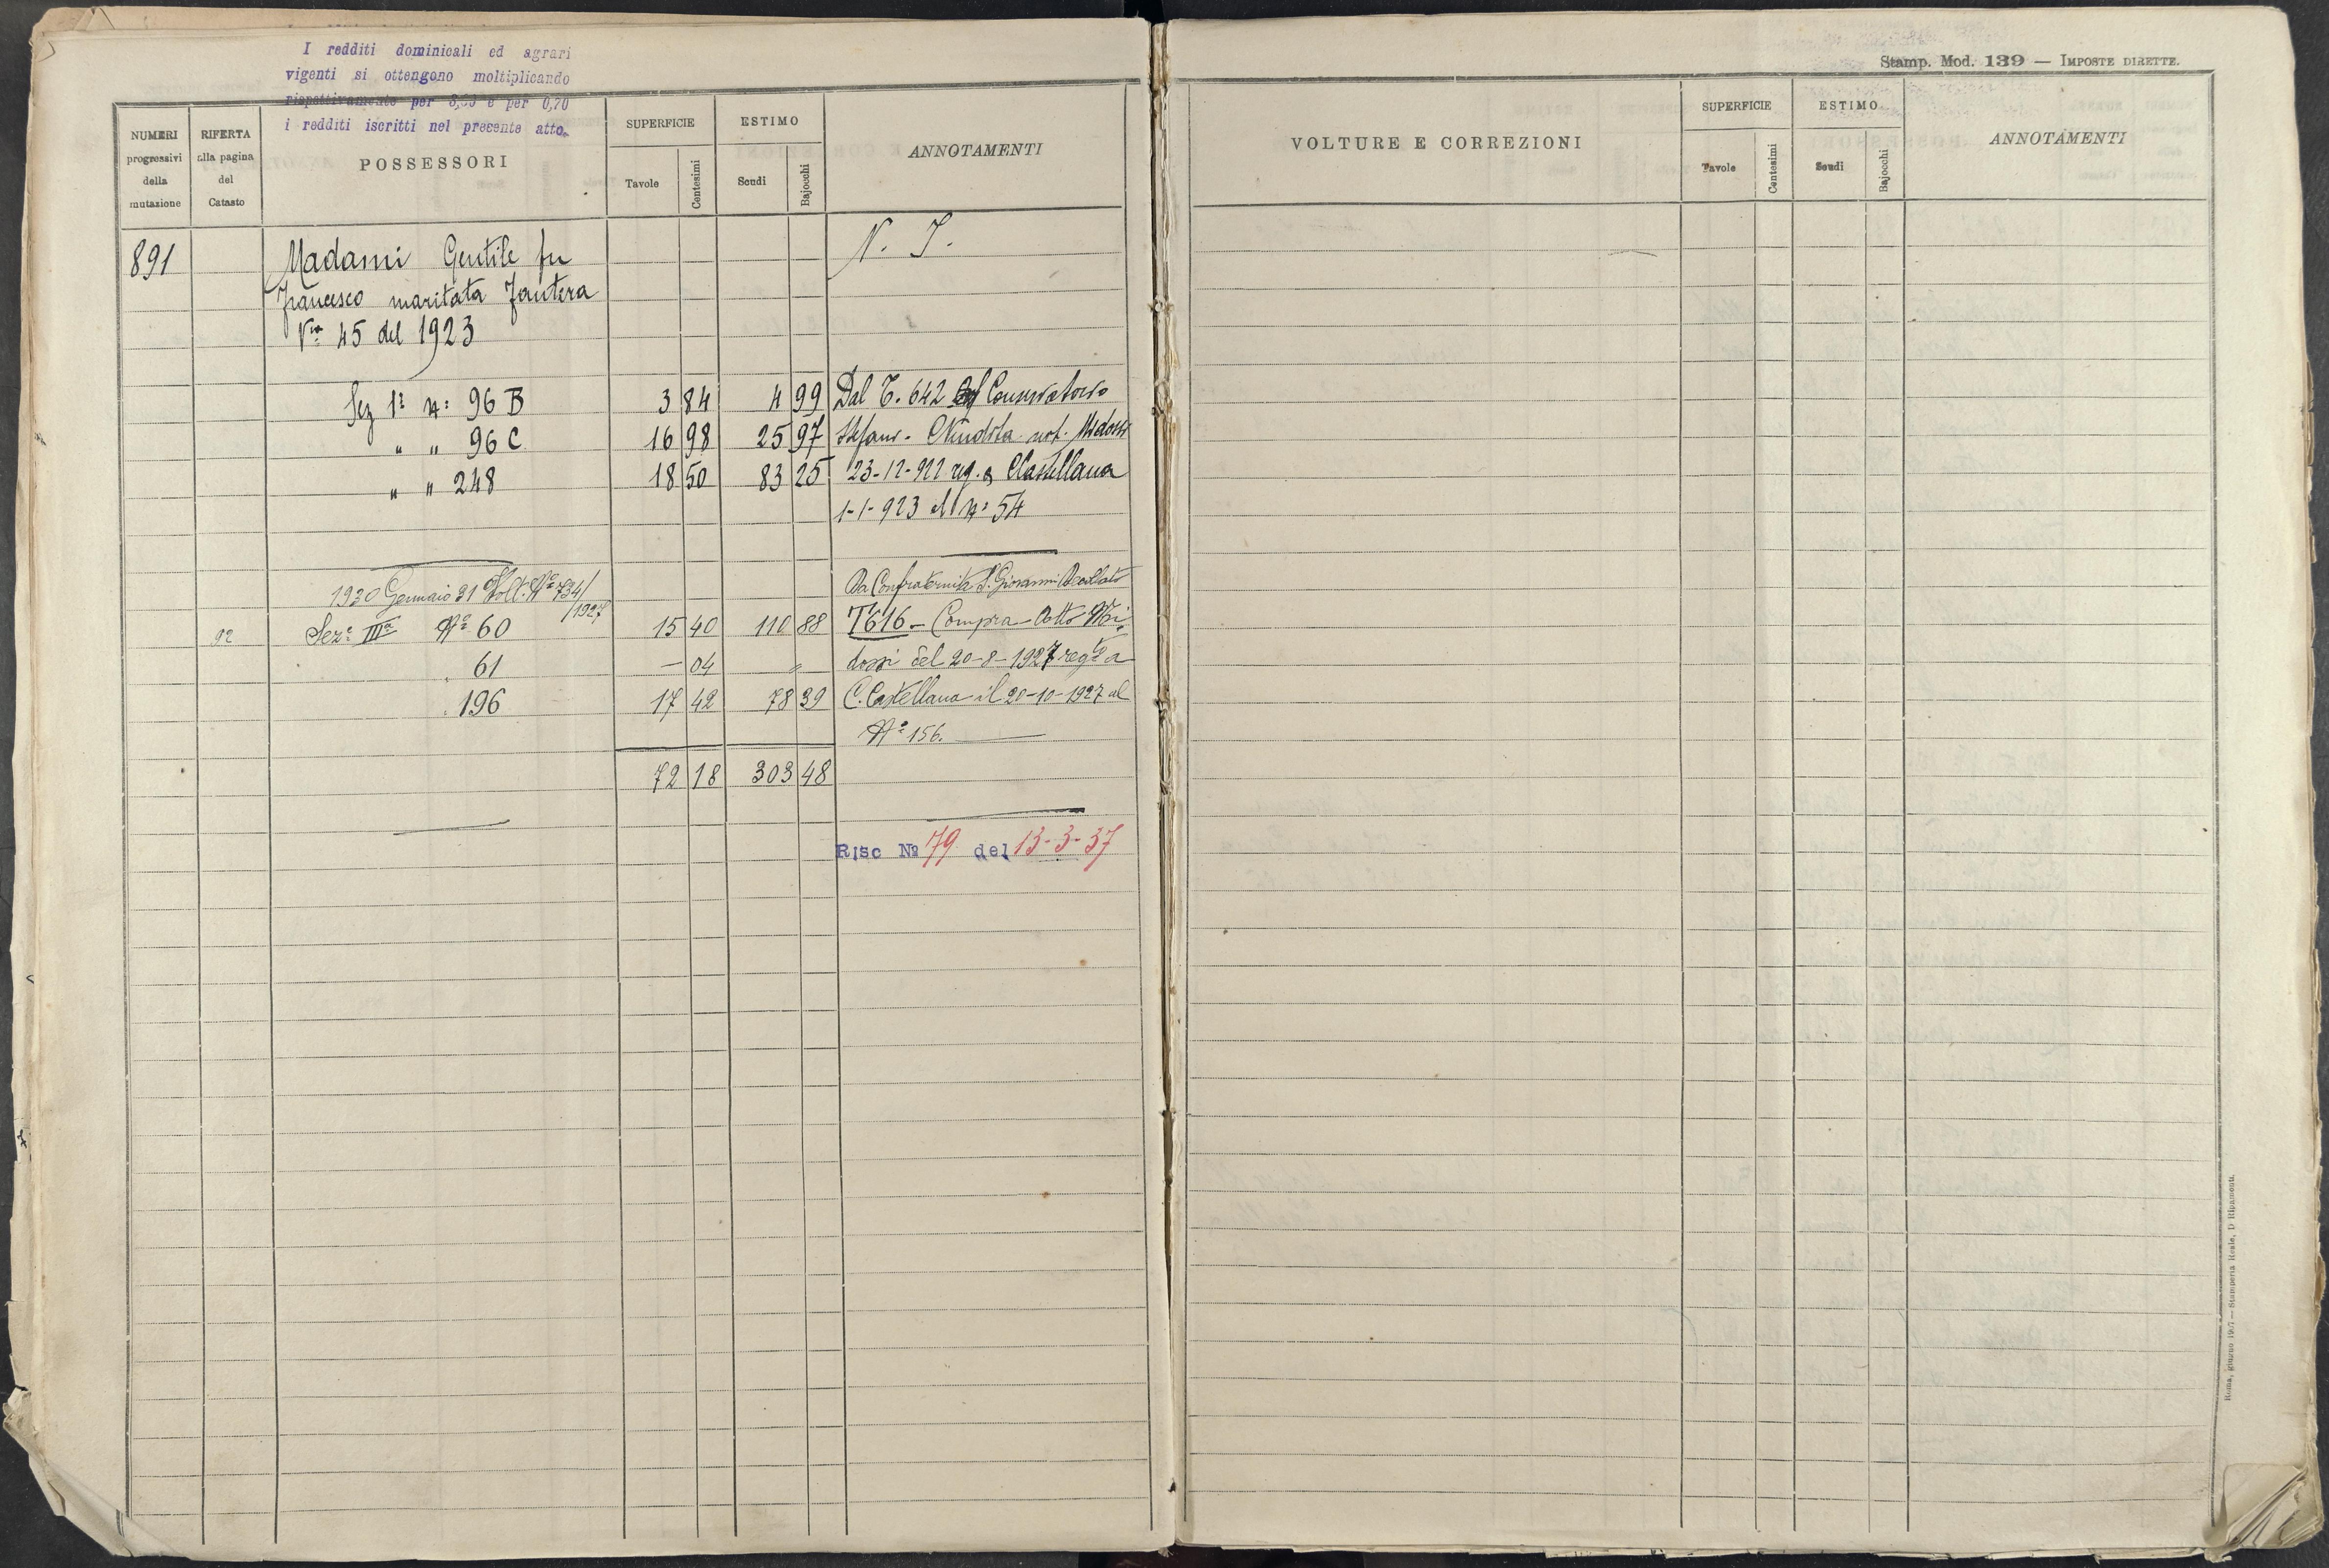 I redditi dominicali ed agrari
vigenti si ottengono moltiplicando
rispettivamente per e per 0,70
i redditi iscritti nel presente atto.
NUMERI progressivi della mutazione
RIFERTA alla pagina del Catasto
POSSESSORI
SUPERFICIE
Tavole
Centesimi
ESTIMO
Scudi
Bajocchi
ANNOTAMENTI
891
Madami Gentile fu
Francesco maritata Fantera
45 del 1923
N. I.
Sez 1ª Nº 96 B 3 84 4 99 Dal T. 642 Conservatorio
" " 96 C 16 98 25 97 Stefani - not. Midossi
" " 248 18 50 83 25 23-12-922 reg. a CCastellana
1-1-923 al Nº 54
1930 Gennaio 31 Volt. Nº 734/
/1927
Da Confraternita S. Giovanni Decollato
92 Sezº IIIª Nº 60 15 40 110 88 T616 - Compra - Atto Mi
61 — 04 " dossi del 20-8-1927 regtº a
196 17 42 78 39 C. Castellana il 20-10-1927 al
Nº 156.
72 18 303 48
Risc Nº 79 del 13-3-37
Stamp. Mod. 139 — IMPOSTE DIRETTE.
VOLTURE E CORREZIONI
SUPERFICIE
Tavole
Centesimi
ESTIMO
Scudi
Bajocchi
ANNOTAMENTI
Roma, giugno — Stamperia Reale, D. Ripamonti.